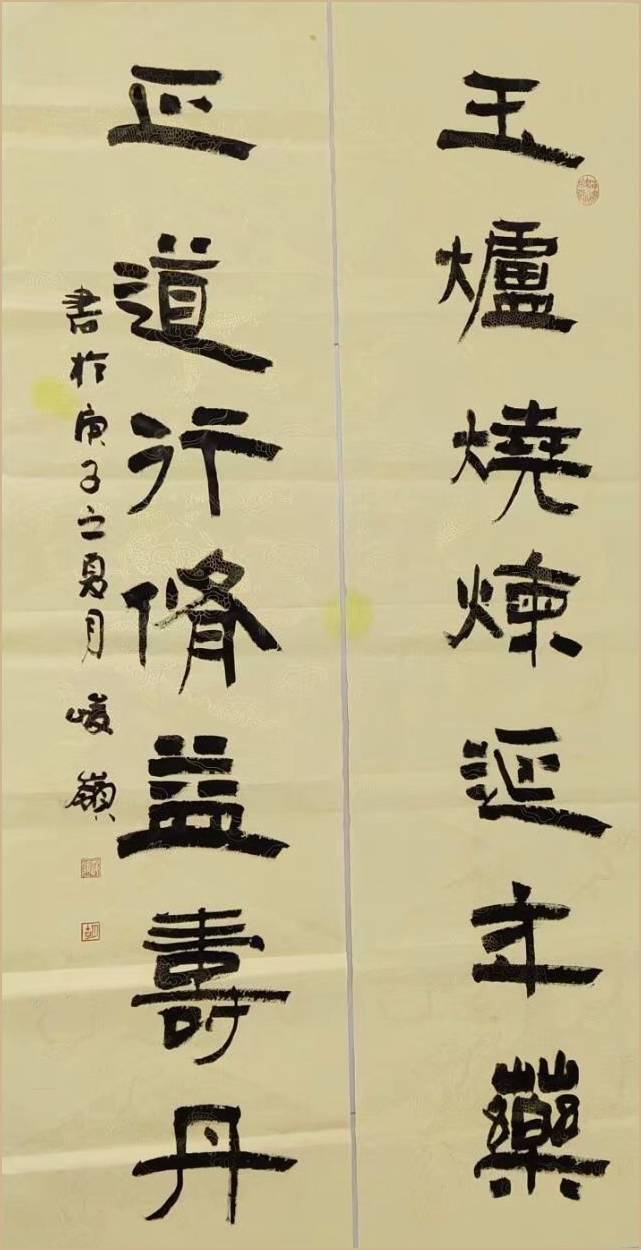 玉爐燒煉延年藥
正道行脩益壽丹
書於庚子之夏月 峻嶺